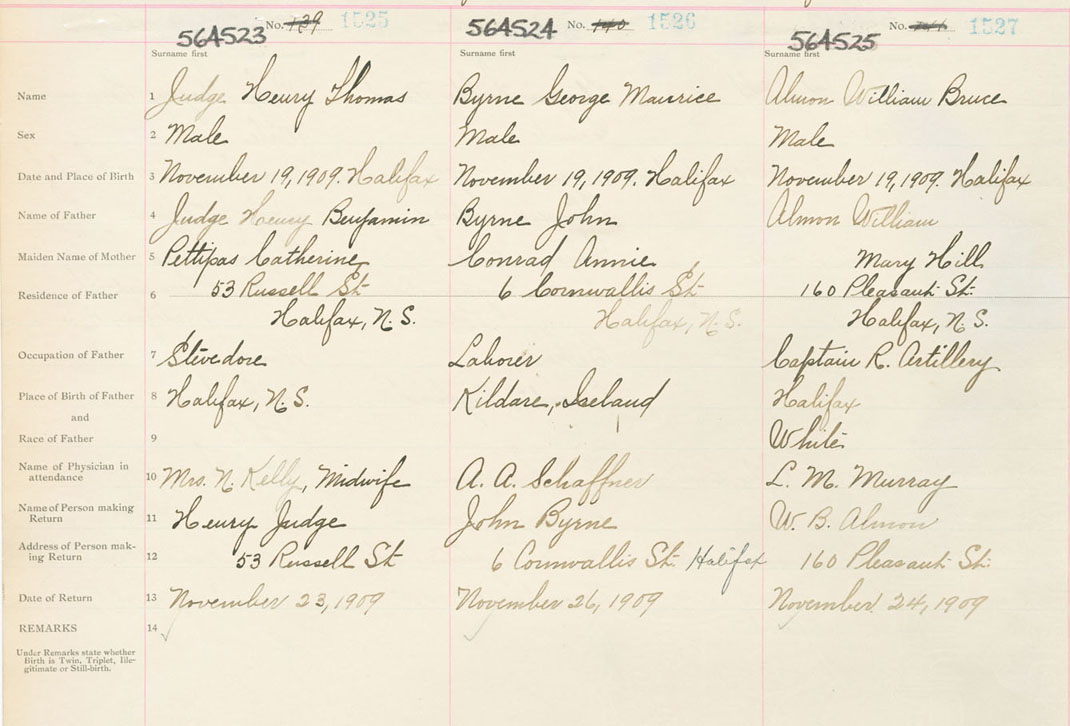 No. 139 1525 No. 140 1526 No. 1527
564523 564524 564525
Surname first Surname first Surname first
Name 1 Judge Henry Thomas Byrne George Maurice Almon William Bruce
Sex 2 Male Male Male
Date and Place of Birth 3 November 19, 1909. Halifax November 19, 1909. Halifax November 19, 1909. Halifax
Name of Father 4 Judge Henry Benjamin Byrne John Almon William
Maiden Name of Mother 5 Pettipas Catherine Conrad Annie Mary Hill
Residence of Father 6 53 Russell St. 6 Cornwallis St. 160 Pleasant St.
Halifax, N.S. Halifax, N.S. Halifax, N.S.
Occupation of Father 7 Stevedore Laborer Captain R. Artillery
Place of Birth of Father 8 Halifax, N.S. Kildare, Ireland Halifax
and
Race of Father 9 White
Name of Physician in
attendance 10 Mrs. N. Kelly, Midwife A. A. Schaffner L. M. Murray
Name of Person making
Return 11 Henry Judge John Byrne W. B. Almon
Address of Person mak-
ing Return 12 53 Russell St 6 Cornwallis St. Halifax 160 Pleasant St.
Date of Return 13 November 23, 1909 November 26, 1909 November 24, 1909
REMARKS 14
Under Remarks state whether
Birth is Twin, Triplet, Ille-
gitimate or Still-birth.